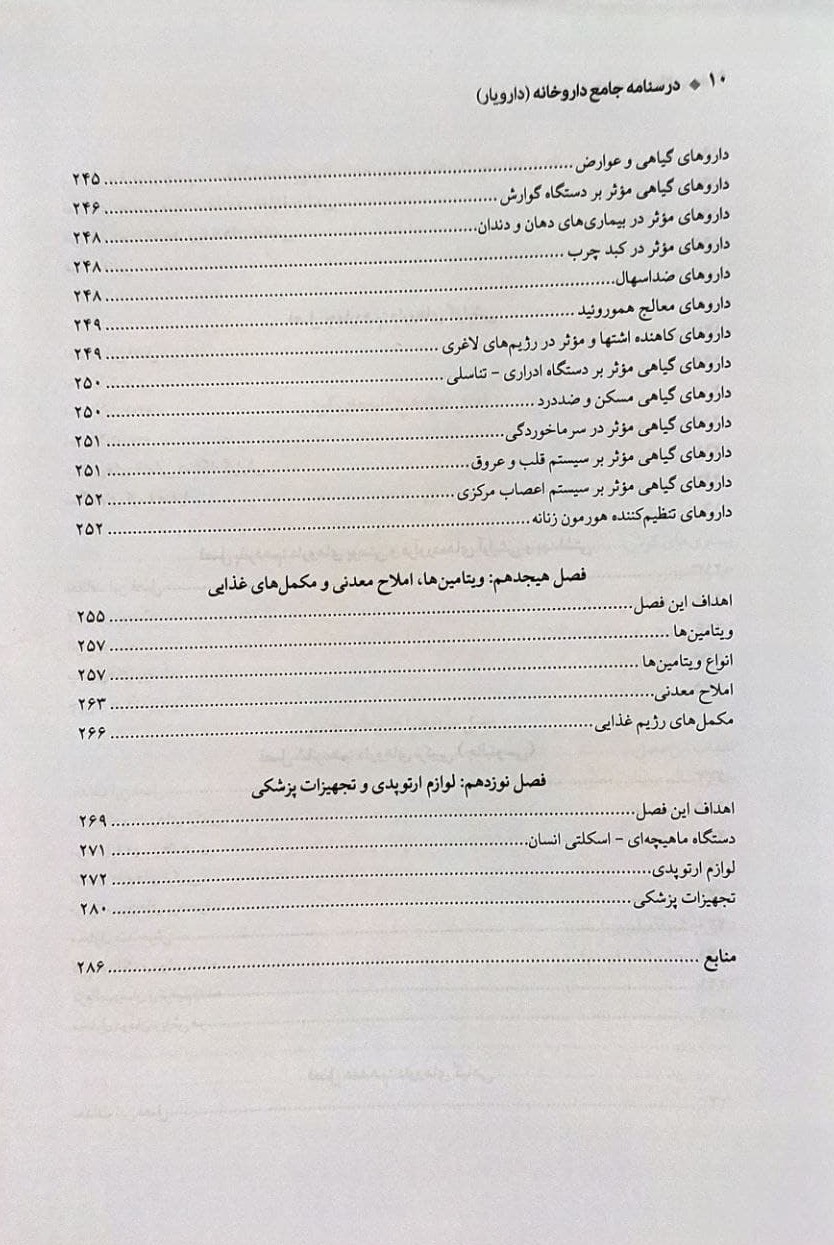 ۱۰ ◆ درسنامه جامع داروخانه (دارویار)
داروهای گیاهی و عوارض ........ ۲۴۵
داروهای گیاهی مؤثر بر دستگاه گوارش ........ ۲۴۶
داروهای مؤثر در بیماری‌های دهان و دندان ........ ۲۴۸
داروهای مؤثر در کبد چرب ........ ۲۴۸
داروهای ضداسهال ........ ۲۴۸
داروهای معالج هموروئید ........ ۲۴۹
داروهای کاهنده اشتها و مؤثر در رژیم‌های لاغری ........ ۲۴۹
داروهای گیاهی مؤثر بر دستگاه ادراری - تناسلی ........ ۲۵۰
داروهای گیاهی مسکن و ضددرد ........ ۲۵۰
داروهای گیاهی مؤثر در سرماخوردگی ........ ۲۵۱
داروهای گیاهی مؤثر بر سیستم قلب و عروق ........ ۲۵۱
داروهای گیاهی مؤثر بر سیستم اعصاب مرکزی ........ ۲۵۲
داروهای تنظیم‌کننده هورمون زنانه ........ ۲۵۲
فصل هیجدهم: ویتامین‌ها، املاح معدنی و مکمل‌های غذایی
اهداف این فصل ........ ۲۵۵
ویتامین‌ها ........ ۲۵۷
انواع ویتامین‌ها ........ ۲۵۷
املاح معدنی ........ ۲۶۳
مکمل‌های رژیم غذایی ........ ۲۶۶
فصل نوزدهم: لوازم ارتوپدی و تجهیزات پزشکی
اهداف این فصل ........ ۲۶۹
دستگاه ماهیچه‌ای - اسکلتی انسان ........ ۲۷۱
لوازم ارتوپدی ........ ۲۷۲
تجهیزات پزشکی ........ ۲۸۰
منابع ........ ۲۸۶